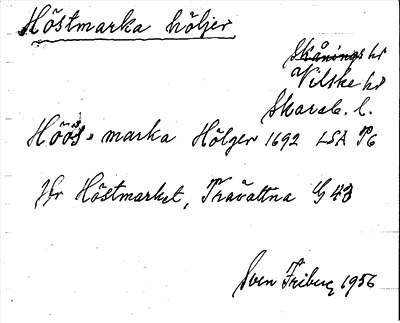 Höstmarka höljer
Skånings hd
Vilske hd
Skarab. l.
Höös-marka Hölger 1692 LSA P6
Jfr Höstmarket, Travattna G 43
Sven Friberg 1956